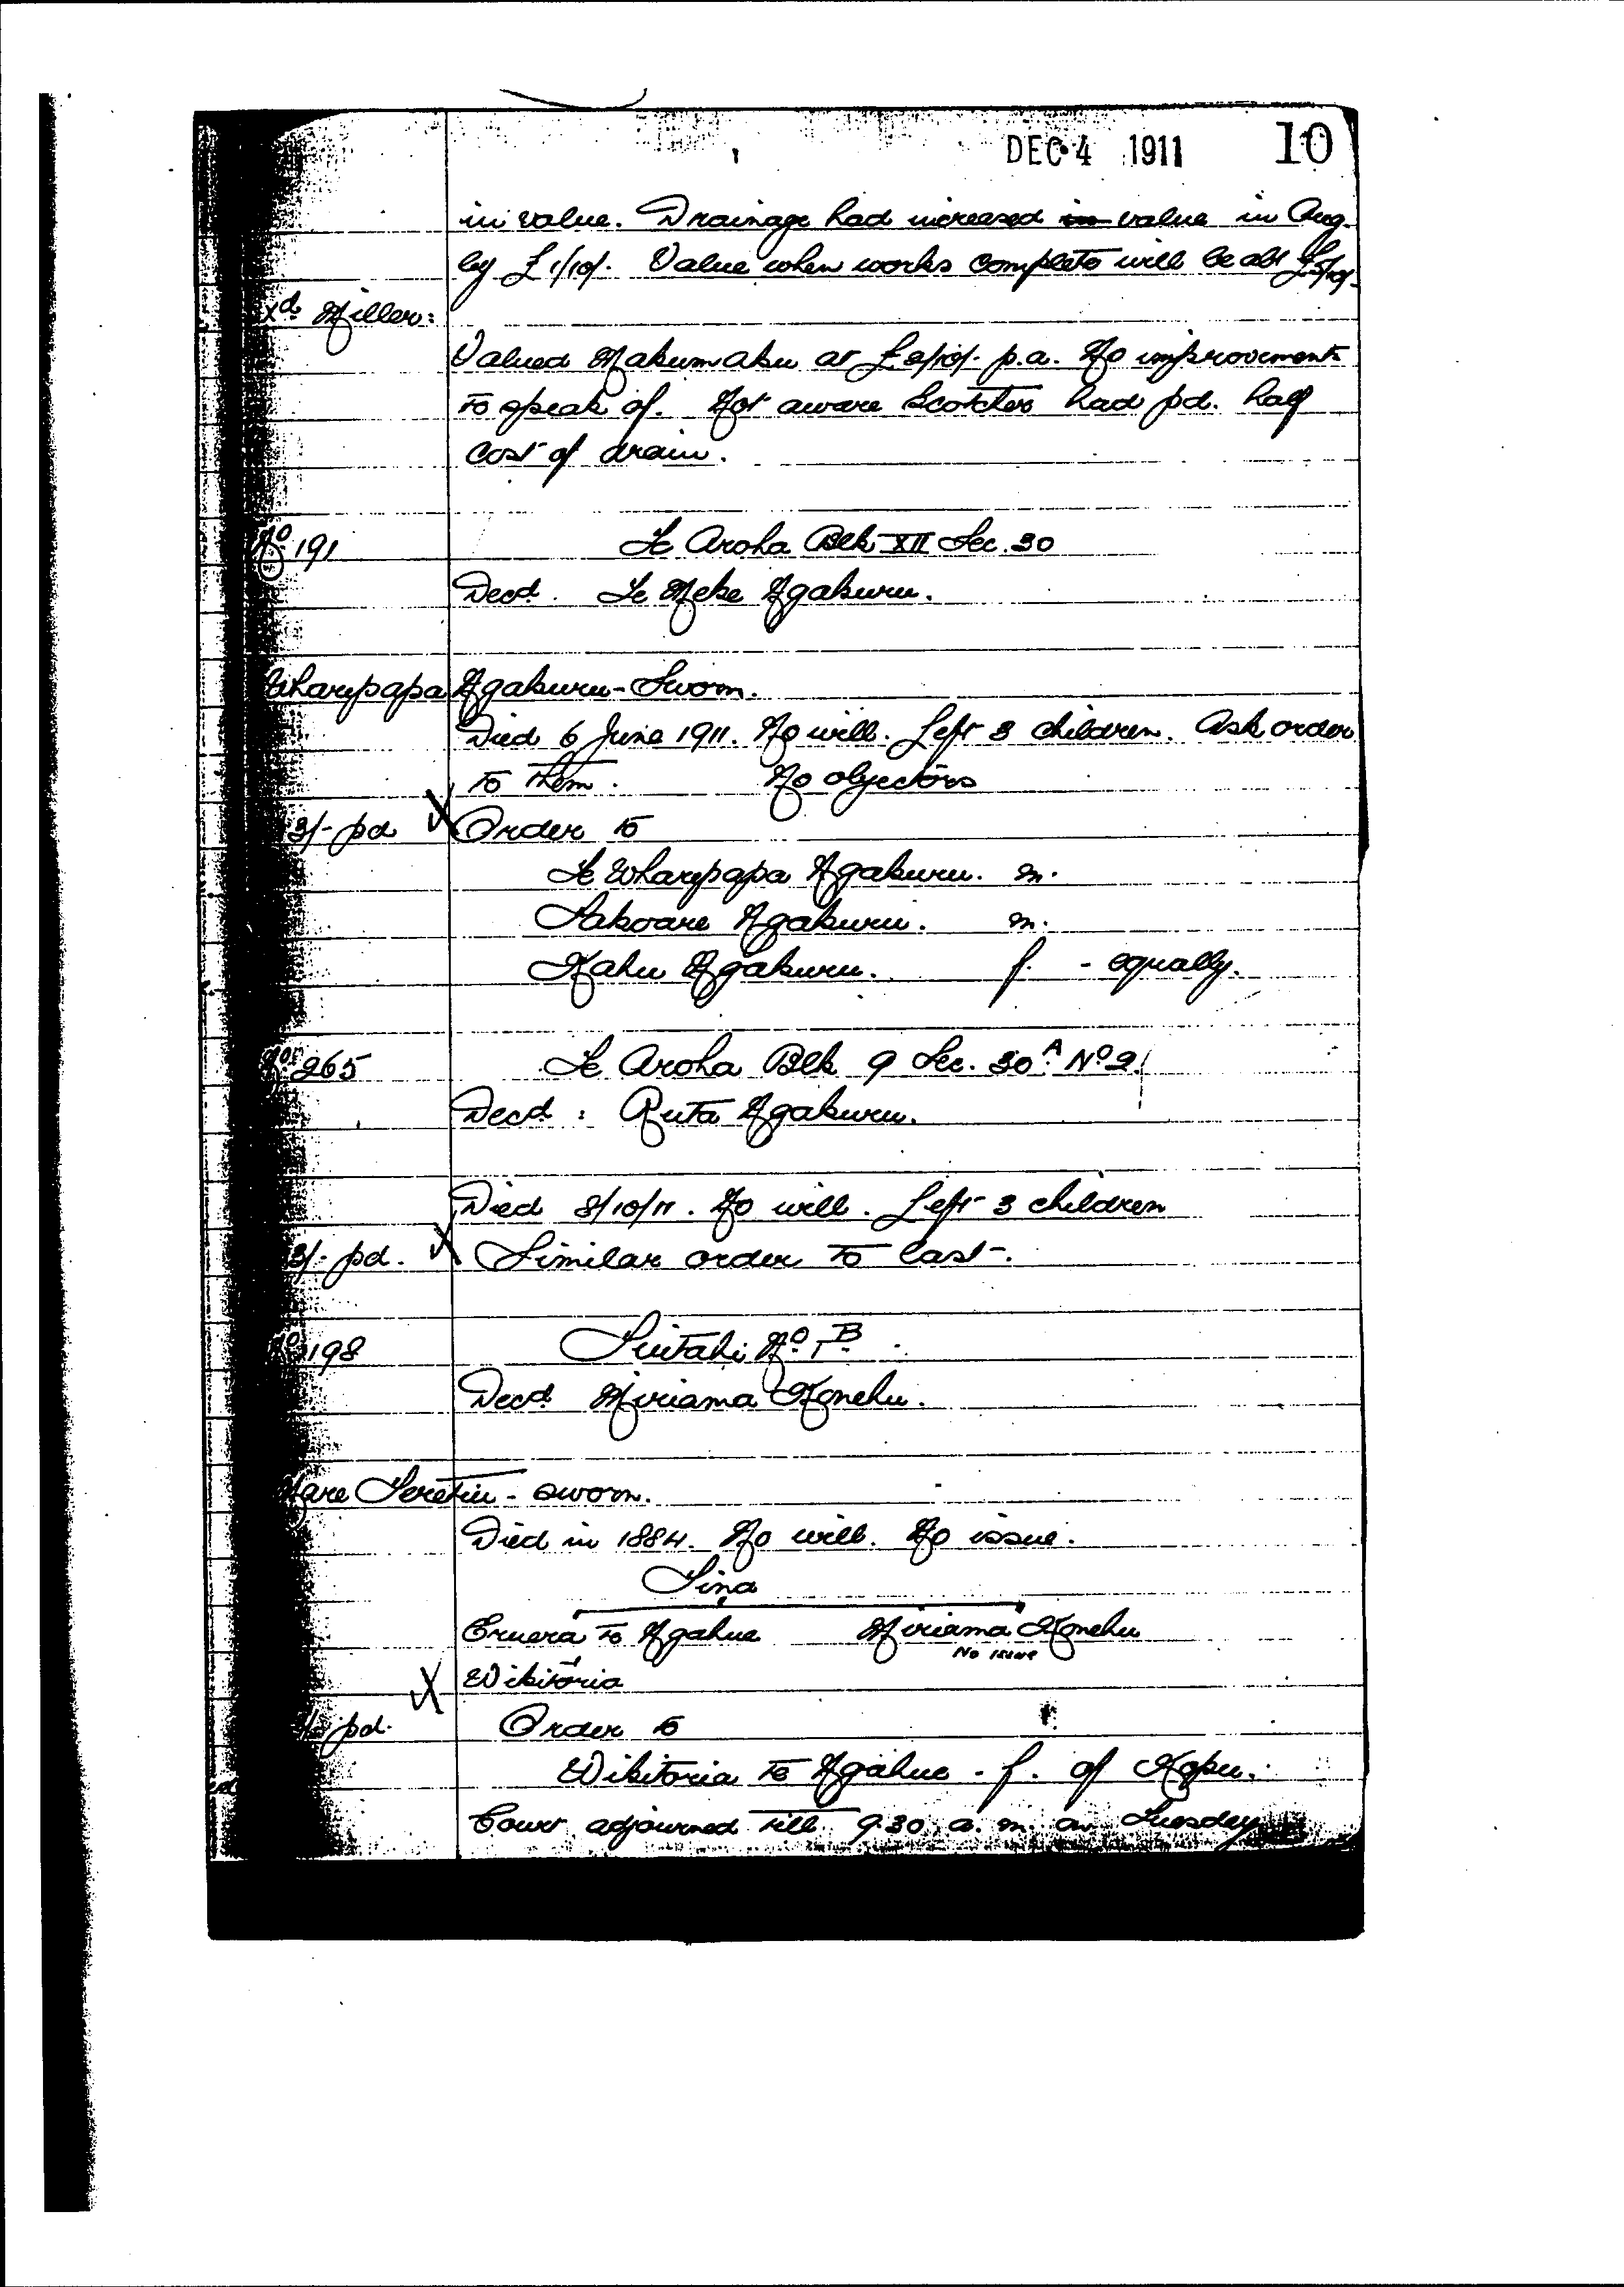 DEC 4 1911 10
in value. Drainage had increased in value in Aug.
by £1/10/. Value when works complete will be abt £5/10/-
xd. Miller:
Valued Makumaku at £2/10/- p.a. No improvements
to speak of. Not aware Scotcher had pd. half
cost of drain.
No. 191 Te Aroha Blk XII Sec. 30
Decd. Te Meke Ngakuru.
Wharepapa Ngakuru - Sworn.
Died 6 June 1911. No will. Left 3 children. Ask order
to them. No objectors
3/- pd Order to
Te Wharepapa Ngakuru. m.
Hakoare Ngakuru. m.
Kahu Ngakuru. f. - equally.
265 Te Aroha Blk 9 Sec. 30A No 2.
Decd: Ruta Ngakuru.
Died 8/10/11. No will. Left 3 children
3/- pd. Similar order to last.
No 198 Tiritahi No. 1B
Decd. Miriama Konehu.
Hare Teretiu - sworn.
Died in 1884. No will. No issue.
Tina
Eruera Te Ngahue Miriama Konehu
No issue
Wikitoria
pd. Order to
Wikitoria Te Ngahue - f. of Kopu.
Court adjourned till 9.30 a.m. on Tuesday